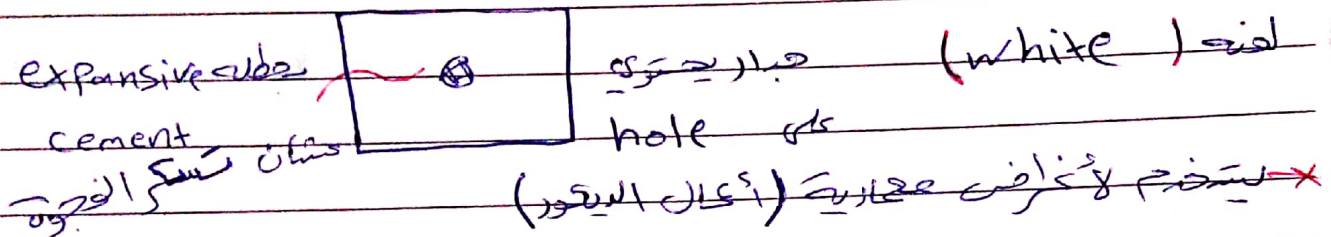 لونه (white) جدار يحتوي بنحط expansive
على hole cement
عشان تسكر الفجوة
× يستخدم لأغراض معمارية (أعمال الديكور)